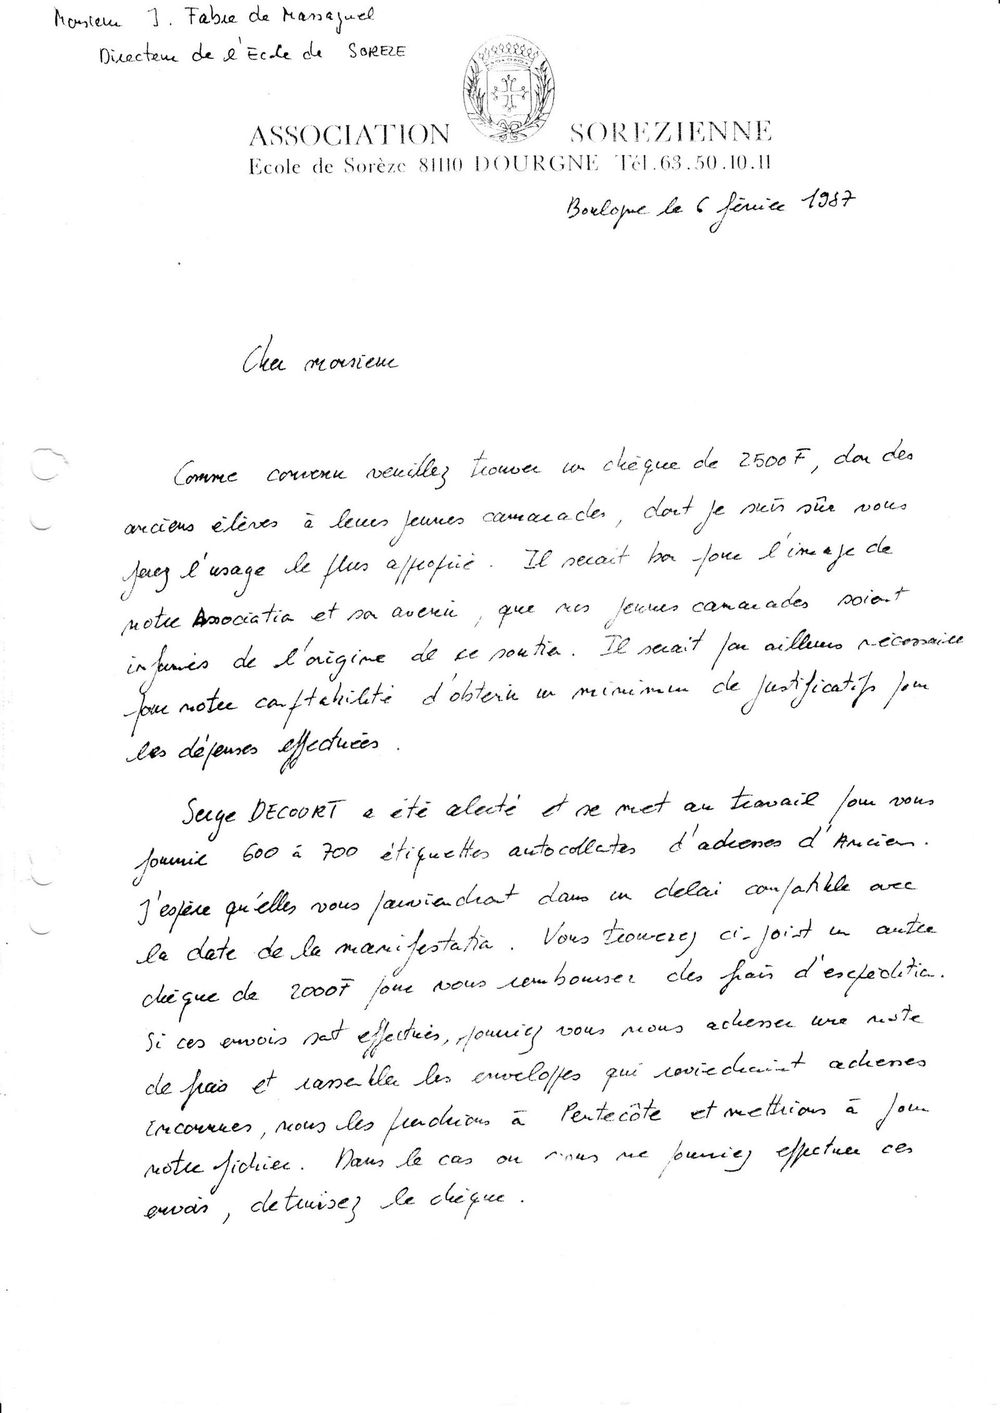 Monsieur J. Fabre de Massaguel
Directeur de l'Ecole de SOREZE
ASSOCIATION SOREZIENNE
Ecole de Sorèze 81110 DOURGNE Tél.63.50.10.11
Boulogne le 6 février 1987
Cher monsieur
Comme convenu veuillez trouver un chèque de 2500F, don des
anciens élèves à leurs jeunes camarades, dont je suis sûr vous
ferez l'usage le plus approprié. Il serait bon pour l'image de
notre Association et son avenir, que nos jeunes camarades soient
informés de l'origine de ce soutien. Il serait par ailleurs nécessaire
pour notre comptabilité d'obtenir un minimum de justificatifs pour
les dépenses effectuées.
Serge DECOORT a été alerté et se met au travail pour vous
fournir 600 à 700 étiquettes autocollantes d'adresses d'Anciens.
J'espère qu'elles vous parviendront dans un delai compatible avec
la date de la manifestation. Vous trouverez ci-joint un autre
chèque de 2000F pour vous rembourser des frais d'expédition.
Si ces envois sont effectués, pourriez vous nous adresser une note
de frais et rassembler les enveloppes qui reviendraient adresses
inconnues, nous les prendrions à Pentecôte et mettrions à jour
notre fichier. Dans le cas ou vous ne pourriez effectuer ces
envois, detruisez le chèque.